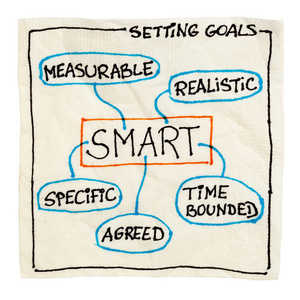 SETTING GOALS
MEASURABLE
REALISTIC
SMART
SPECIFIC
TIME
BOUNDED
AGREED